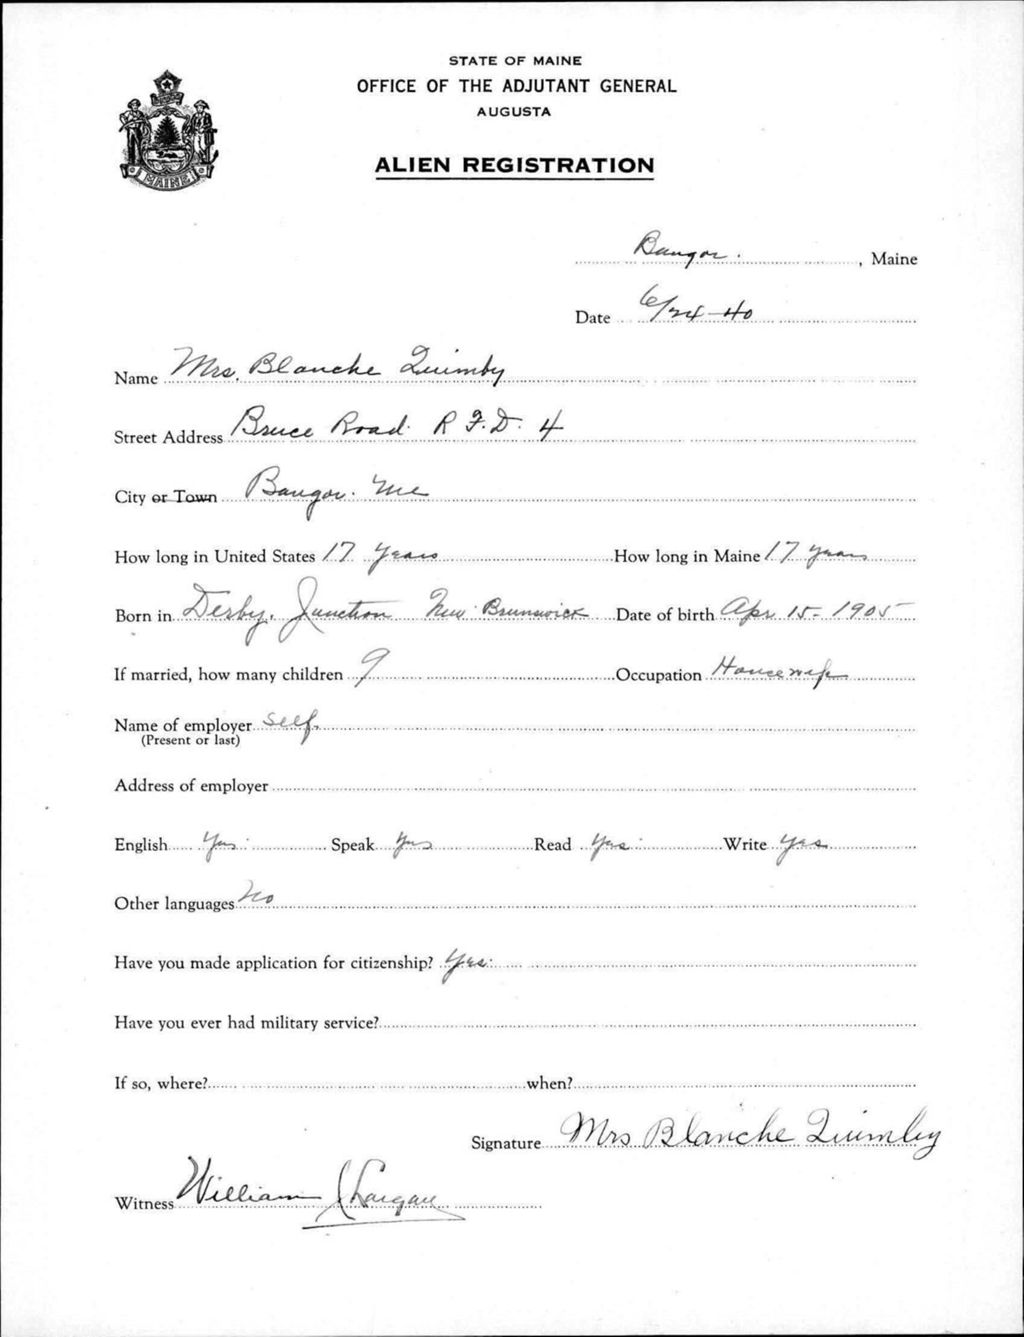 STATE OF MAINE
OFFICE OF THE ADJUTANT GENERAL
AUGUSTA
ALIEN REGISTRATION
MAINE
Bangor. , Maine
Date 6/24-40
Name Mrs. Blanche Quimby
Street Address Bruce Road. R F.D. 4
City or Town Bangor. Me
How long in United States 17 years How long in Maine 17 years
Born in Derby, Junction New Brunswick Date of birth Apr 15-1905
If married, how many children 9 Occupation Housewife
Name of employer self.
(Present or last)
Address of employer
English Yes. Speak Yes Read Yes. Write Yes
Other languages No
Have you made application for citizenship? Yes.
Have you ever had military service?
If so, where? when?
Signature Mrs Blanche Quimby
Witness William